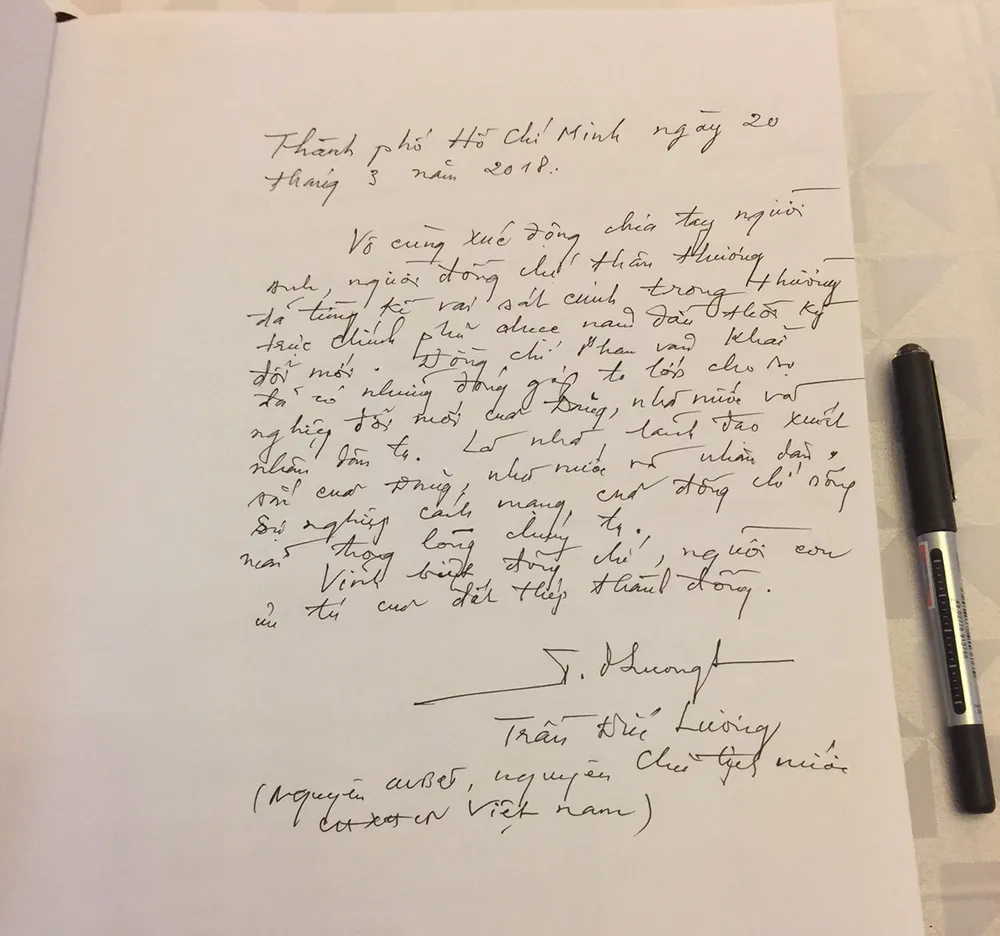 Thành phố Hồ Chí Minh ngày 20
tháng 3 năm 2018.
Vô cùng xúc động chia tay người
anh, người đồng chí thân thương
đã từng kề vai sát cánh trong thường
trực chính phủ năm đầu thời kỳ
đổi mới. Đồng chí Phan Văn Khải
đã có những đóng góp to lớn cho sự
nghiệp đổi mới của Đảng, nhà nước và
nhân dân ta. Là nhà lãnh đạo xuất
sắc của Đảng, nhà nước và nhân dân,
sự nghiệp cách mạng của đồng chí sống
mãi trong lòng chúng ta.
Vĩnh biệt đồng chí, người con
ưu tú của đất thép thành đồng.
T. Đ Lương
Trần Đức Lương
(Nguyên UVBCT, nguyên Chủ tịch nước
CHXHCN Việt nam)